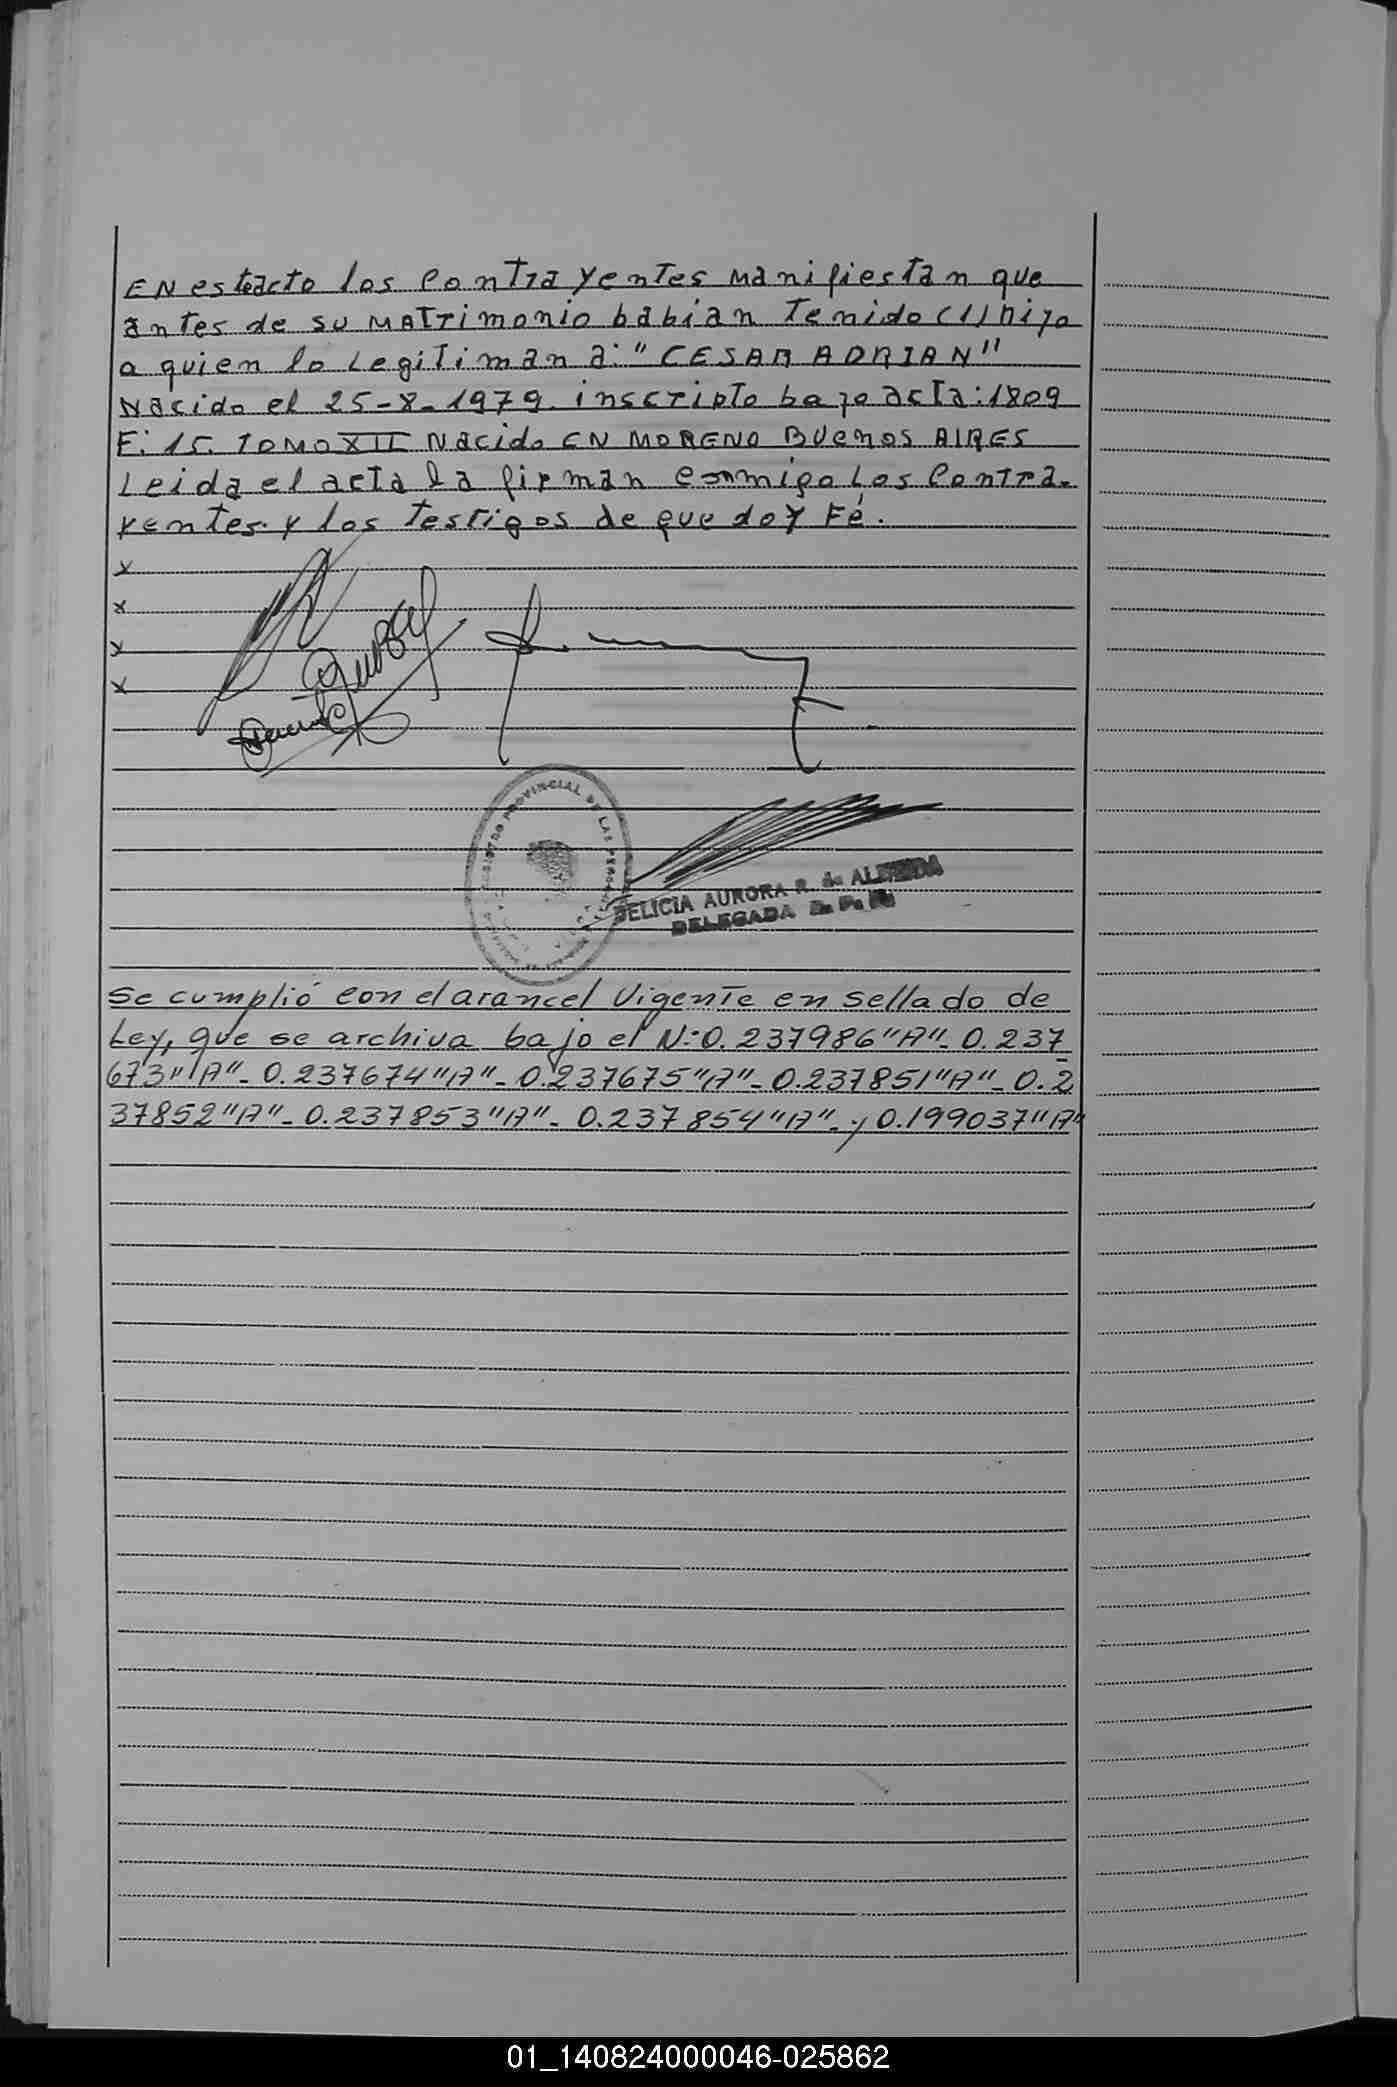 EN este acto los contrayentes manifiestan que
antes de su MATrimonio habian Tenido (1) hijo
a quien lo Legitiman a: "CESAR ADRIAN"
Nacido el 25-8-1979. inscripto bajo acta: 1809
F: 15. TOMO XII Nacido EN MORENO BUENOS AIRES
Leida el acta la firman conmigo Los Contra-
yentes y los Testigos de que doy Fé.
x
x
x
x
REGISTRO PROVINCIAL DE LAS PERSONAS
DELICIA AURORA R. de ALMEIDA
DELEGADA
Se cumplió con el arancel Vigente en sellado de
Ley, que se archiva bajo el N:0.237986"A"- 0.237
673"A"- 0.237674"A"- 0.237675"A"- 0.237851"A"- 0.2
37852"A"- 0.237853"A"- 0.237854"A"- y 0.199037"A"
01_140824000046-025862